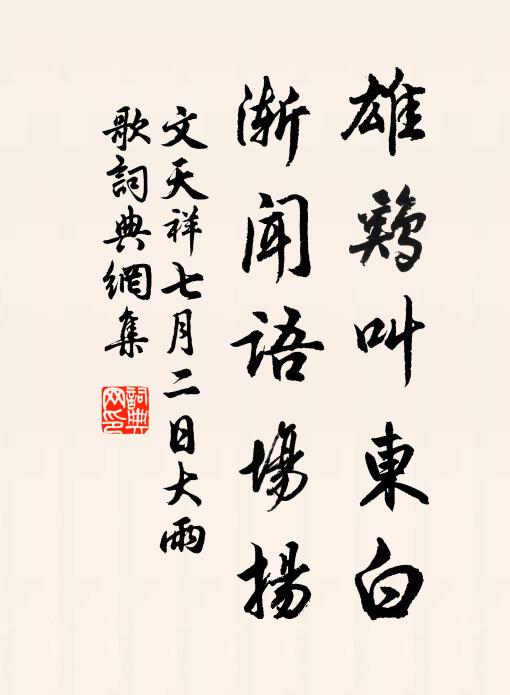 雄鷄叫東白
漸聞語場揚
文天祥七月二日大雨
歌詞典網集
詞典網印